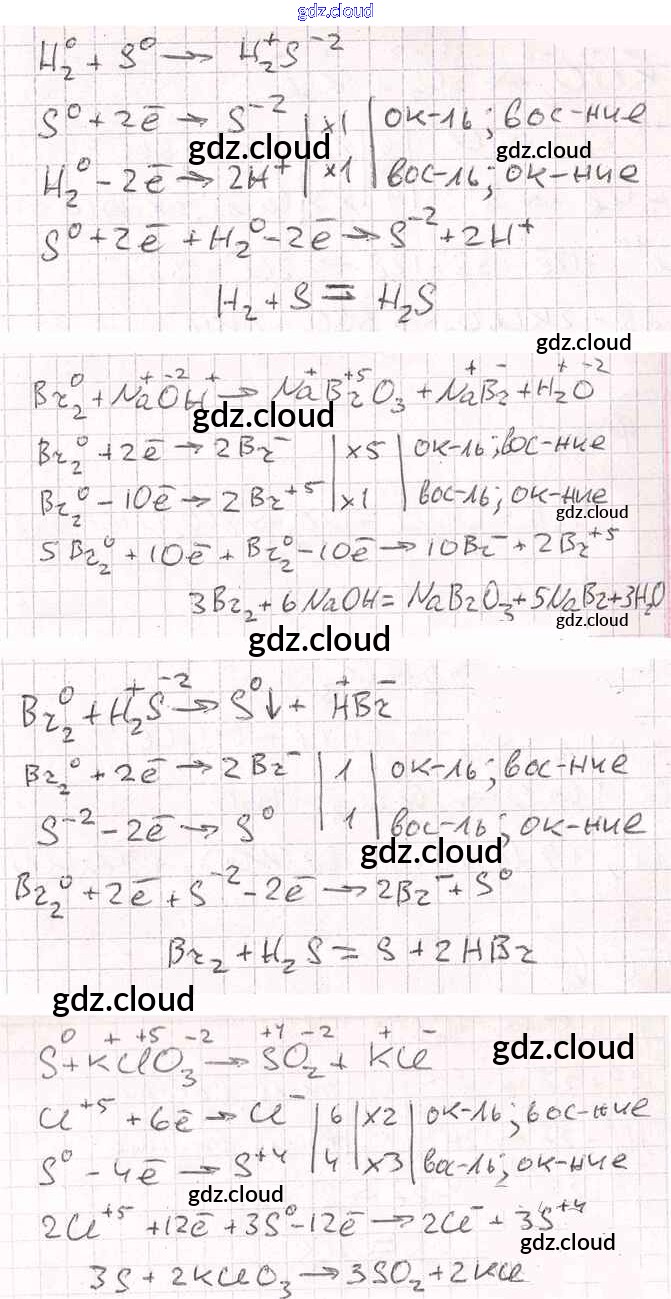 gdz.cloud
gdz.cloud
H₂⁰ + S⁰ → H₂⁺S⁻²
S⁰ + 2ē → S⁻² | ×1 | ок-ль; вос-ние
gdz.cloud gdz.cloud
H₂⁰ - 2ē → 2H⁺ | ×1 | вос-ль; ок-ние
S⁰ + 2ē + H₂⁰ - 2ē → S⁻² + 2H⁺
H₂ + S = H₂S
gdz.cloud
Br₂⁰ + Na⁺O⁻²H⁺ → Na⁺Br⁺⁵O₃ + Na⁺Br⁻ + H₂⁺O⁻²
gdz.cloud
Br₂⁰ + 2ē → 2Br⁻ | ×5 | ок-ль; вос-ние
Br₂⁰ - 10ē → 2Br⁺⁵ | ×1 | вос-ль; ок-ние
gdz.cloud
5Br₂⁰ + 10ē + Br₂⁰ - 10ē → 10Br⁻ + 2Br⁺⁵
3Br₂ + 6NaOH = NaBrO₃ + 5NaBr + 3H₂O
gdz.cloud
gdz.cloud
Br₂⁰ + H₂⁺S⁻² → S⁰↓ + H⁺Br⁻
Br₂⁰ + 2ē → 2Br⁻ | 1 | ок-ль; вос-ние
S⁻² - 2ē → S⁰ | 1 | вос-ль; ок-ние
gdz.cloud
Br₂⁰ + 2ē + S⁻² - 2ē → 2Br⁻ + S⁰
Br₂ + H₂S = S + 2HBr
gdz.cloud
S⁰ + K⁺Cl⁺⁵O₃⁻² → S⁺⁴O₂⁻² + K⁺Cl⁻
gdz.cloud
Cl⁺⁵ + 6ē → Cl⁻ | 6 | ×2 | ок-ль; вос-ние
S⁰ - 4ē → S⁺⁴ | 4 | ×3 | вос-ль; ок-ние
gdz.cloud
2Cl⁺⁵ + 12ē + 3S⁰ - 12ē → 2Cl⁻ + 3S⁺⁴
gdz.cloud
3S + 2KClO₃ → 3SO₂ + 2KCl